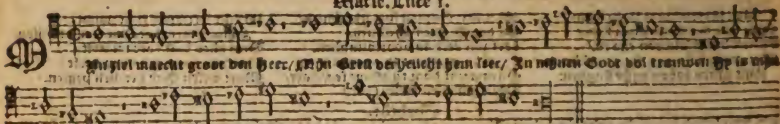 Marie. Luce 1.
MYn ziel maeckt groot den Heer / Mijn Geest verheucht hem seer / In mijnen Godt vol trouwen Hy is mijn